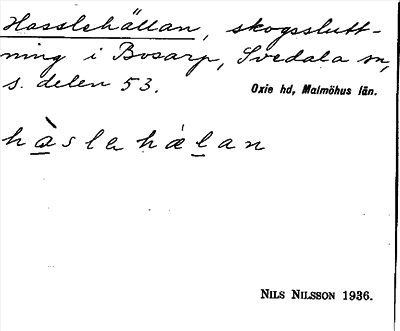 Hasslehällan, skogsslutt-
ning i Bosarp, Svedala sn,
s. delen 53.
Oxie hd, Malmöhus län.
hàslahálan
NILS NILSSON 1936.